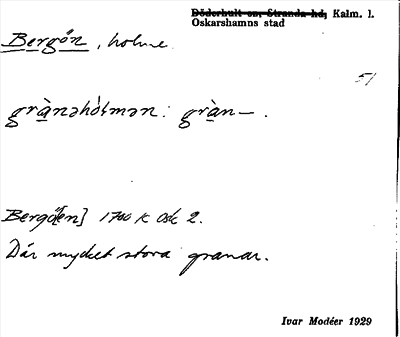 Döderhult sn, Stranda hd, Kalm. l.
Oskarshamns stad
Bergön, holme
51
grànəhólmən: gràn—.
Bergö[en] 1706 K Osk 2.
Där mycket stora granar.
Ivar Modéer 1929